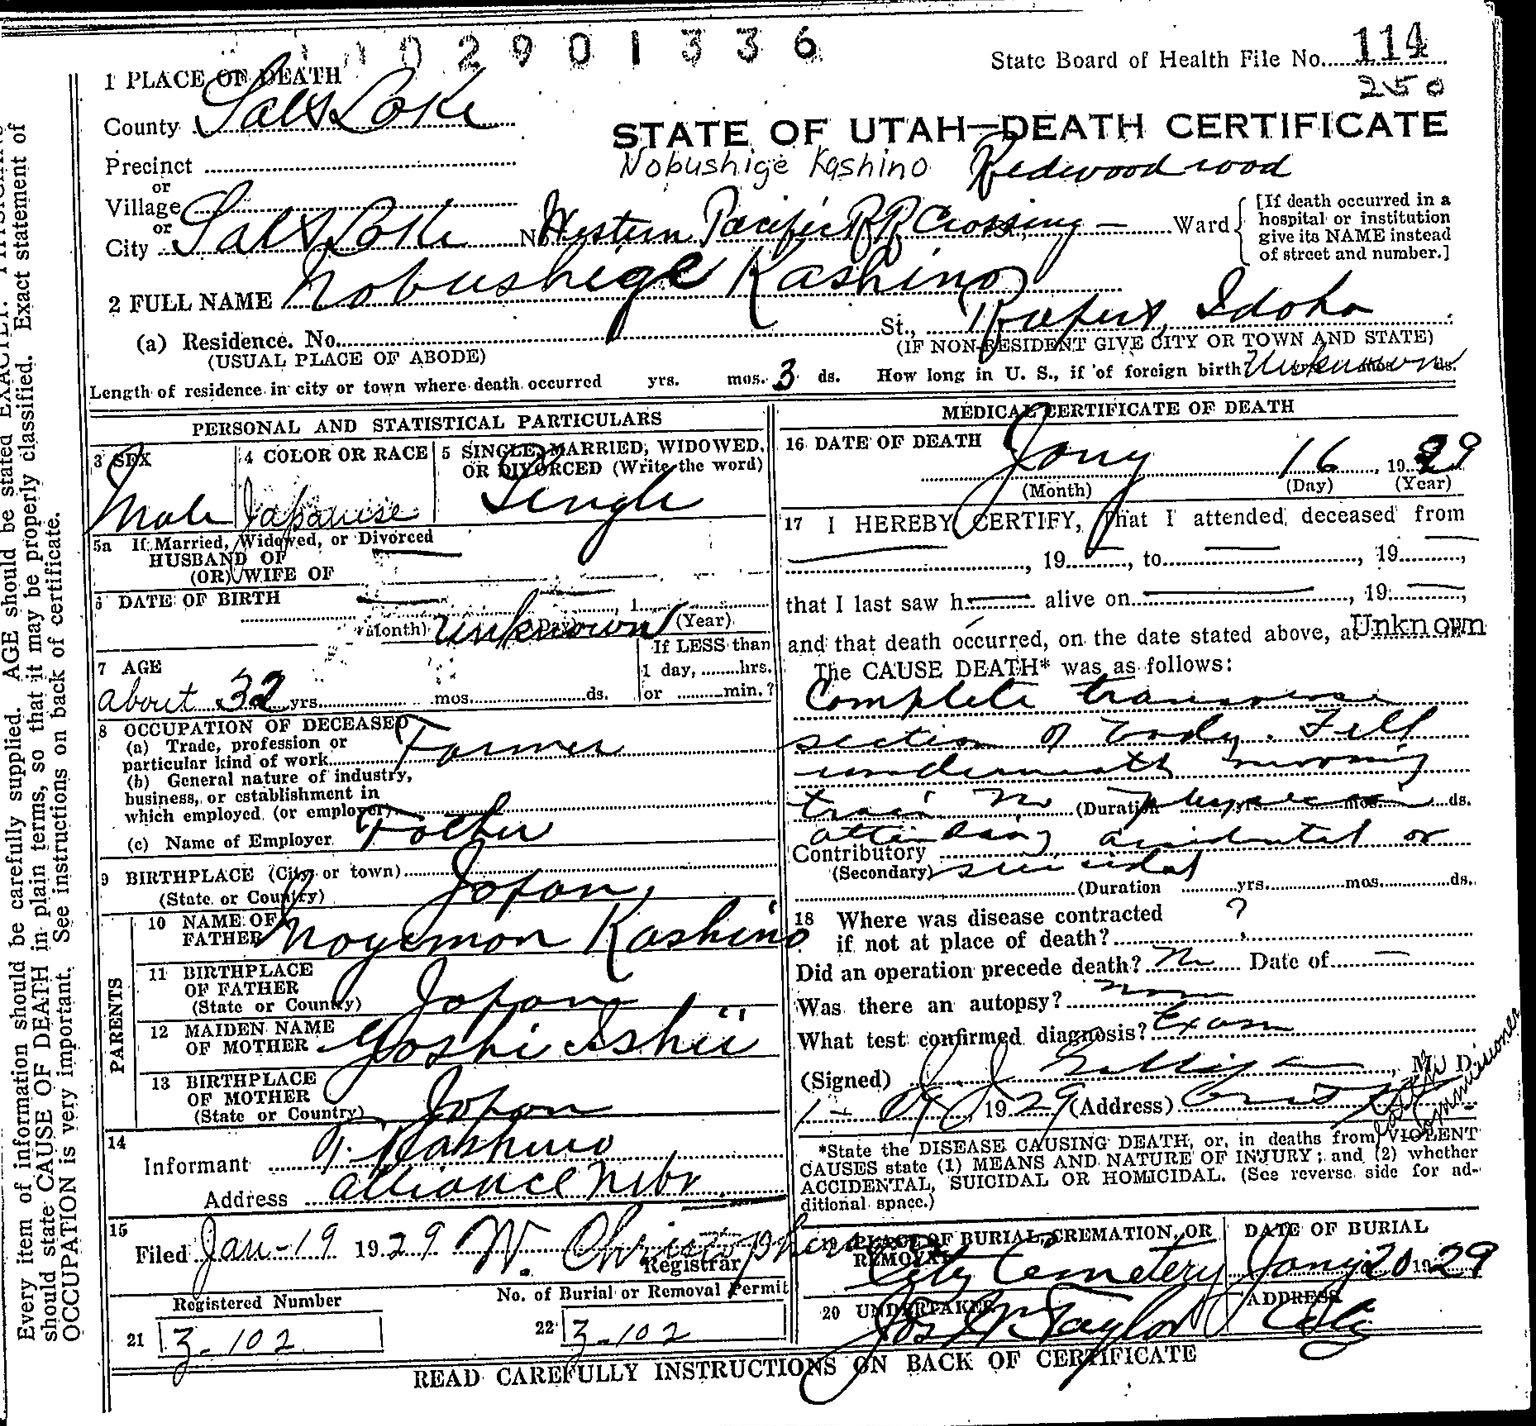 0 2 9 0 1 3 3 6
State Board of Health File No. 114
250
1 PLACE OF DEATH
County Salt Lake
STATE OF UTAH—DEATH CERTIFICATE
Precinct
Nobushige Kashino Redwood road
or
Village
or
City Salt Lake No. Western Pacific RR Crossing — Ward
[If death occurred in a
hospital or institution
give its NAME instead
of street and number.]
2 FULL NAME Nobushige Kashino
(a) Residence. No. St., Rupert, Idaho
(USUAL PLACE OF ABODE) (IF NON-RESIDENT GIVE CITY OR TOWN AND STATE)
Length of residence in city or town where death occurred yrs. mos. 3 ds. How long in U. S., if of foreign birth Unknown ds.
PERSONAL AND STATISTICAL PARTICULARS
3 SEX
Male
4 COLOR OR RACE
Japanese
5 SINGLE, MARRIED, WIDOWED,
OR DIVORCED (Write the word)
Single
5a If Married, Widowed, or Divorced
HUSBAND OF
(OR) WIFE OF
6 DATE OF BIRTH
, 1
(Month) unknown (Day) (Year)
7 AGE
about 32 yrs. mos. ds.
If LESS than
1 day, hrs.
or min.?
8 OCCUPATION OF DECEASED
(a) Trade, profession or
particular kind of work Farmer
(b) General nature of industry,
business, or establishment in
which employed (or employer)
(c) Name of Employer Father
9 BIRTHPLACE (City or town)
(State or Country) Japan
PARENTS
10 NAME OF
FATHER Noyemon Kashino
11 BIRTHPLACE
OF FATHER
(State or Country) Japan
12 MAIDEN NAME
OF MOTHER Yoshi Ishii
13 BIRTHPLACE
OF MOTHER
(State or Country) Japan
14
Informant T. Kashino
Address Alliance Nebr.
15
Filed Jan-19 1929 W. Christopherson
Registrar
Registered Number
21 3-102
No. of Burial or Removal Permit
22 3-102
MEDICAL CERTIFICATE OF DEATH
16 DATE OF DEATH
Jany 16, 1929
(Month) (Day) (Year)
17 I HEREBY CERTIFY, That I attended deceased from
, 19 , to , 19 ,
that I last saw h alive on , 19 ,
and that death occurred, on the date stated above, at Unknown
The CAUSE DEATH* was as follows:
Complete transverse
section of body. Fell
underneath moving
train No (Duration physician mos. ds.
attending accidental or
Contributory
(Secondary) suicidal
(Duration yrs. mos. ds.
18 Where was disease contracted
if not at place of death? ?
Did an operation precede death? No Date of —
Was there an autopsy? None
What test confirmed diagnosis? Exam
(Signed) , M. D.
1- 19 1929 (Address)
Commissioner
*State the DISEASE CAUSING DEATH, or, in deaths from VIOLENT
CAUSES state (1) MEANS AND NATURE OF INJURY; and (2) whether
ACCIDENTAL, SUICIDAL OR HOMICIDAL. (See reverse side for ad-
ditional space.)
19 PLACE OF BURIAL, CREMATION, OR
REMOVAL
City Cemetery
DATE OF BURIAL
Jany 20 1929
20 UNDERTAKER
Jos Wm Taylor
ADDRESS
City
READ CAREFULLY INSTRUCTIONS ON BACK OF CERTIFICATE
Every item of information should be carefully supplied. AGE should be stated EXACTLY.
should state CAUSE OF DEATH in plain terms, so that it may be properly classified. Exact statement of
OCCUPATION is very important. See instructions on back of certificate.